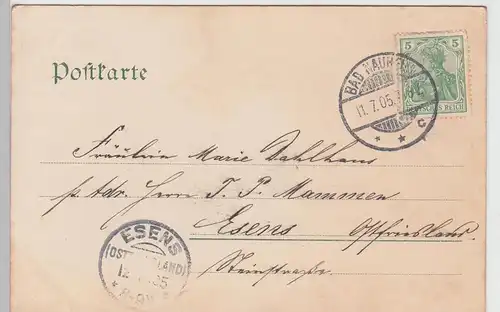 Postkarte
5 5
BAD NAUHEIM
11.7.05.
DEUTSCHES REICH
c
Fräulein Marie Dahlhaus
p. Adr. Herrn T. P. Mammen
Esens Ostfriesland.
Steinstraße.
ESENS
(OSTFRIESLAND)
12